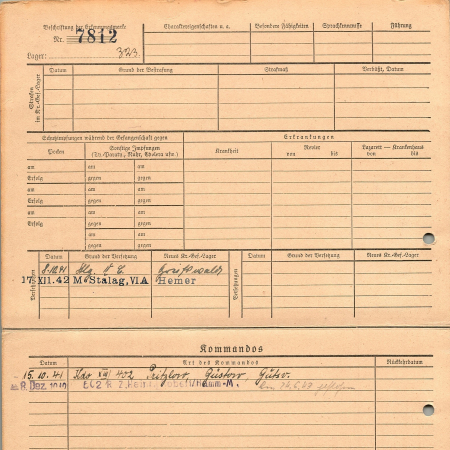 Beschriftung der Erkennungsmarke
Nr. 7812
Lager: 323.
Charaktereigenschaften u. a.
Besondere Fähigkeiten
Sprachkenntnisse
Führung
Strafen im Kr.-Gef.-Lager
Datum
Grund der Bestrafung
Strafmaß
Verbüßt, Datum
Schutzimpfungen während der Gefangenschaft gegen
Erkrankungen
Pocken
Sonstige Impfungen
(Ty.-Paraty., Ruhr, Cholera usw.)
Krankheit
Revier
von bis
Lazarett — Krankenhaus
von bis
am am am
Erfolg gegen gegen
am am am
Erfolg gegen gegen
am am am
Erfolg gegen gegen
am am
gegen gegen
am am
gegen gegen
Versetzungen
Datum
Grund der Versetzung
Neues Kr.-Gef.-Lager
Versetzungen
Datum
Grund der Versetzung
Neues Kr.-Gef.-Lager
8.12.41 Greifswald
17. XII. 42 M-Stalag, VI A Hemer
Kommandos
Datum
Art des Kommandos
Rückkehrdatum
15.10.41 Kdo 402 Pritzlow, Güstow,